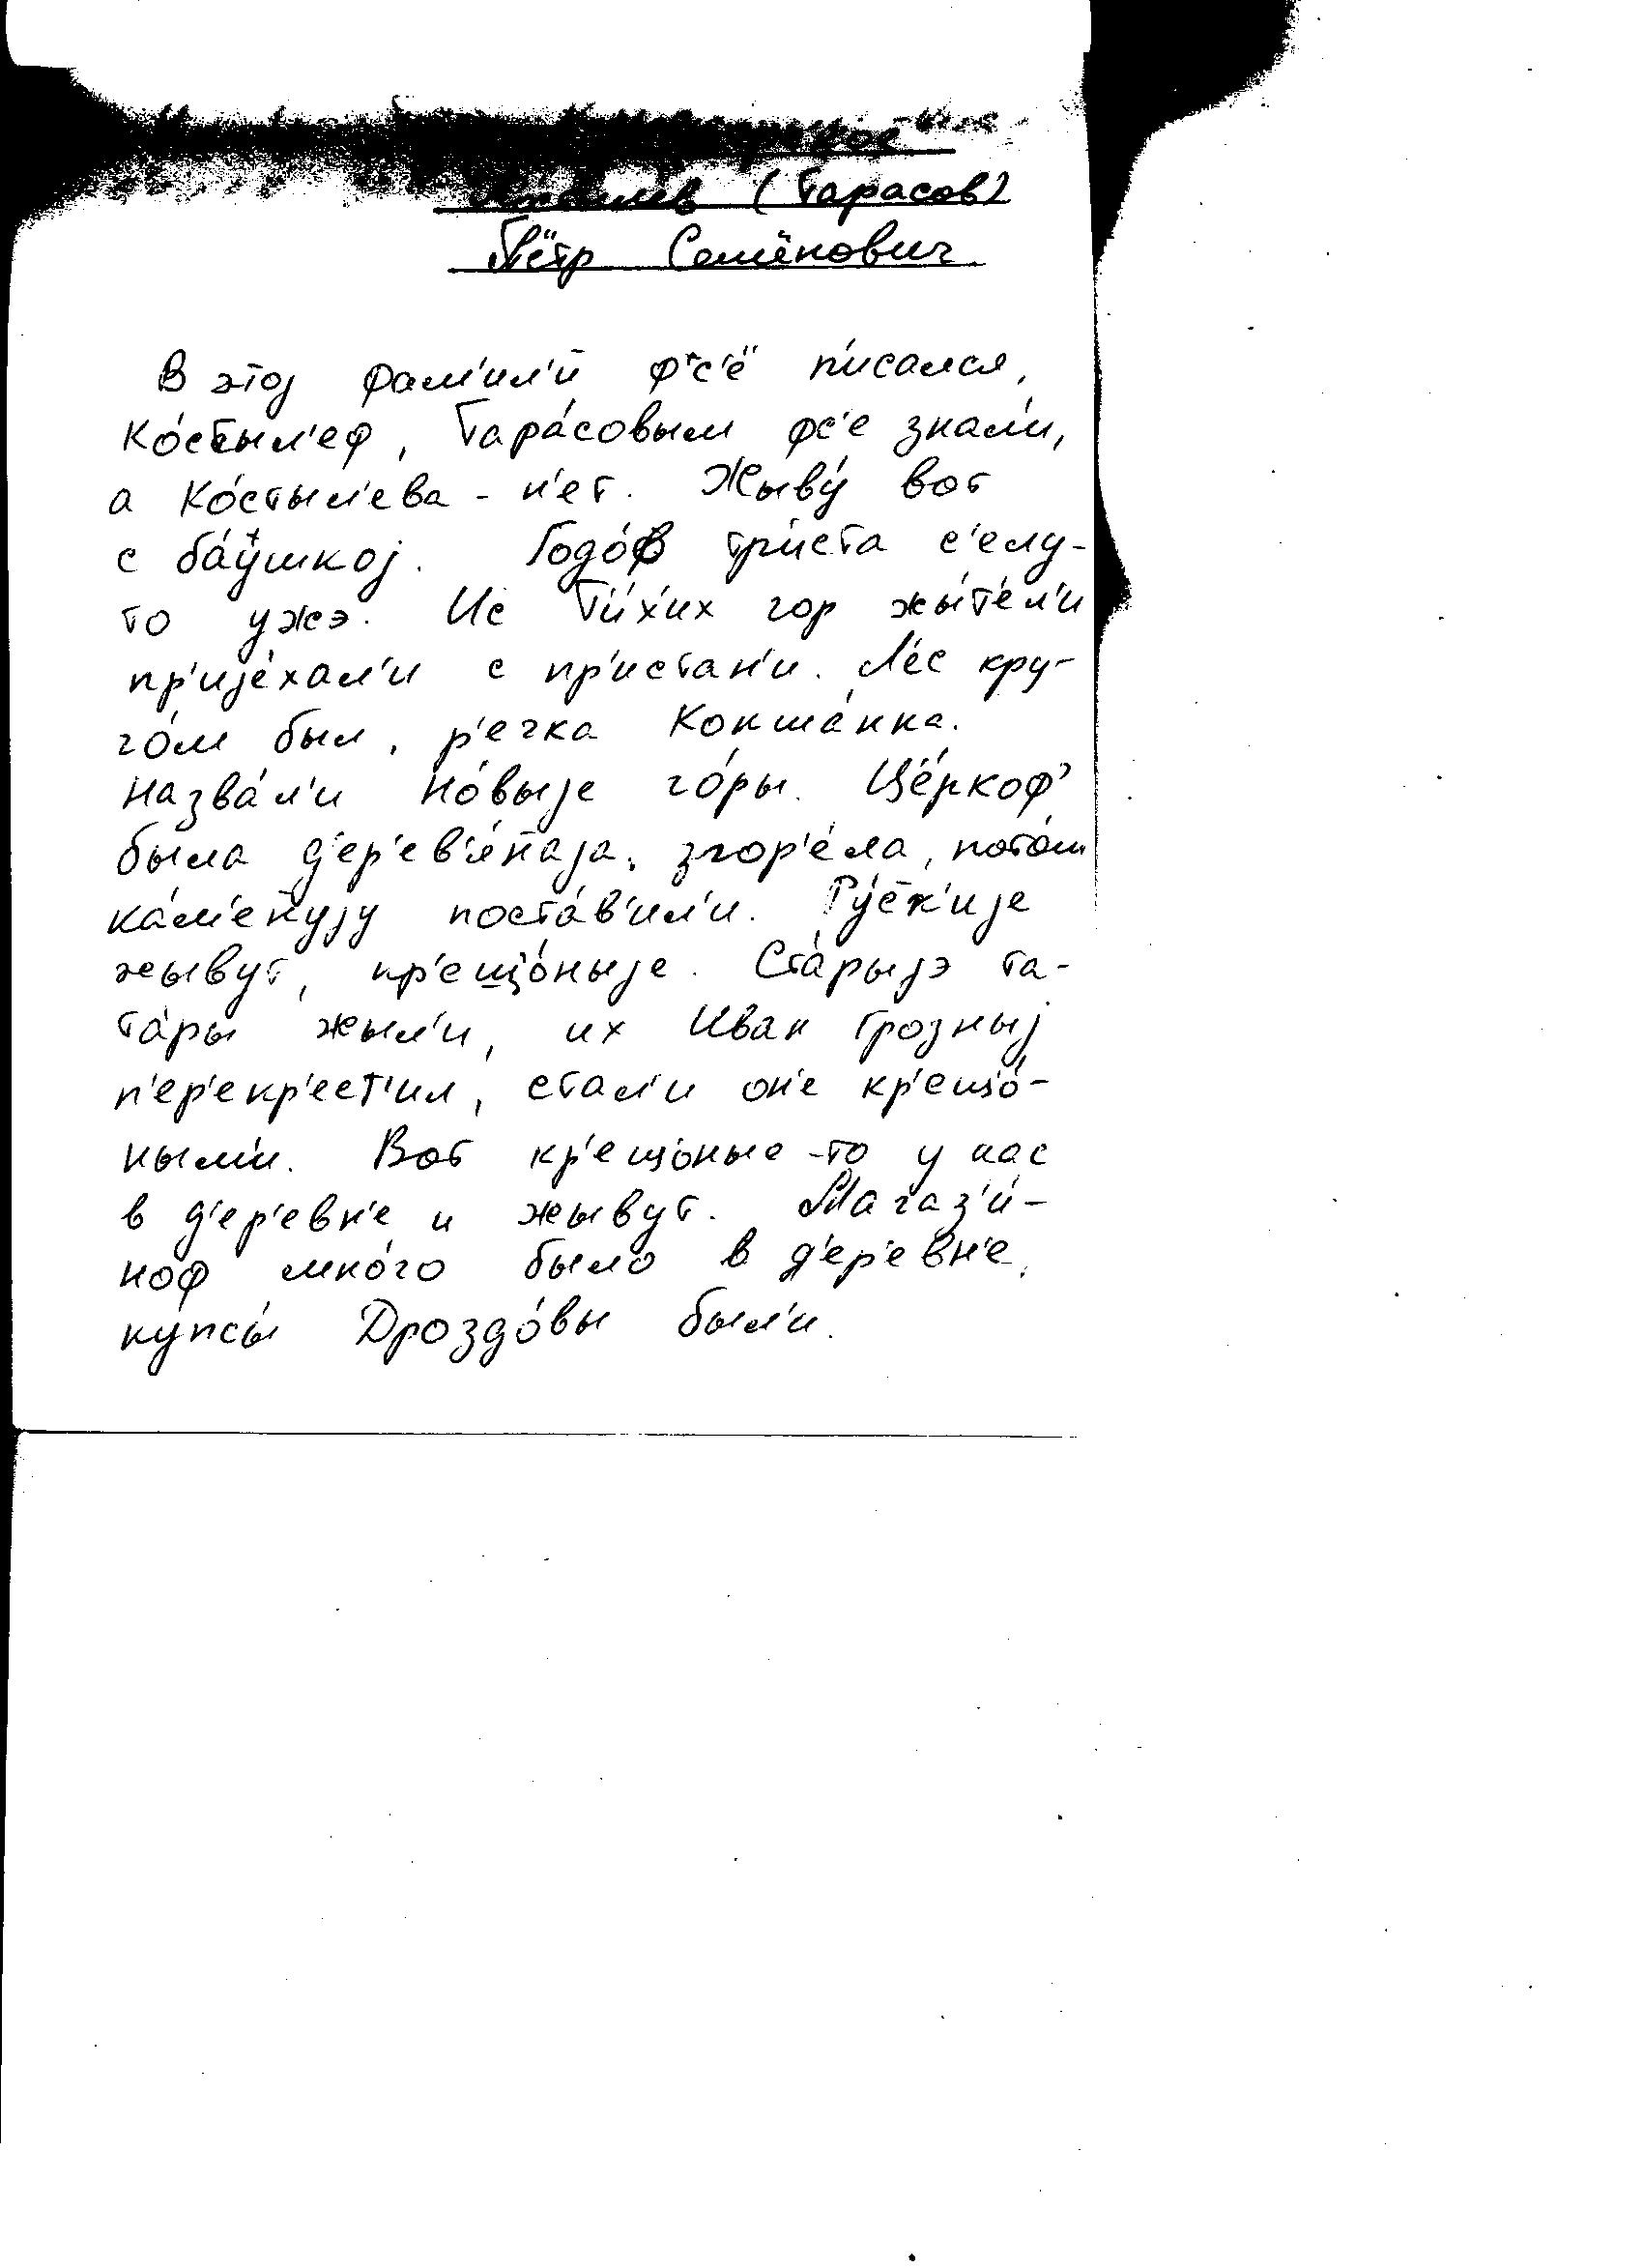 (Тарасов)
Пётр Семёнович
В этоj фам'ил'ӣ ф'с'ё п'исался,
Ко́стыл'еф, Тара́совым фс'е знал'и,
а Ко́стыл'ева - н'ет. Жыву́ вот
с ба́ўшкоj. Годо́ф тр'иста с'елу-
то ужэ. Ис Т'и́х'их гор жы́т'ел'и
пр'иjе́хал'и с пр'истан'и. Л'ес кру-
го́м был, р'ечка Кокша́нка.
Назва́л'и Но́выjе го́ры. Це́ркоф'
была д'ер'ев'я́н̄аjа, згор'е́ла, пото́м
ка́м'ен̄уjу поста́в'ил'и. Ру́с̄к'иjе
жывут, кр'ещо́ныjе. Ста́рыjэ та-
та́ры жыл'и, их Иван Грозныj
п'ер'екр'ест'ил, стал'и он'е кр'ещо́-
ным'и. Вот кр'ещоные-то у нас
в д'ер'евн'е и жывут. Магаз'и́-
ноф мно́го было в д'ер'евн'е,
купсы́ Дроздо́вы был'и.